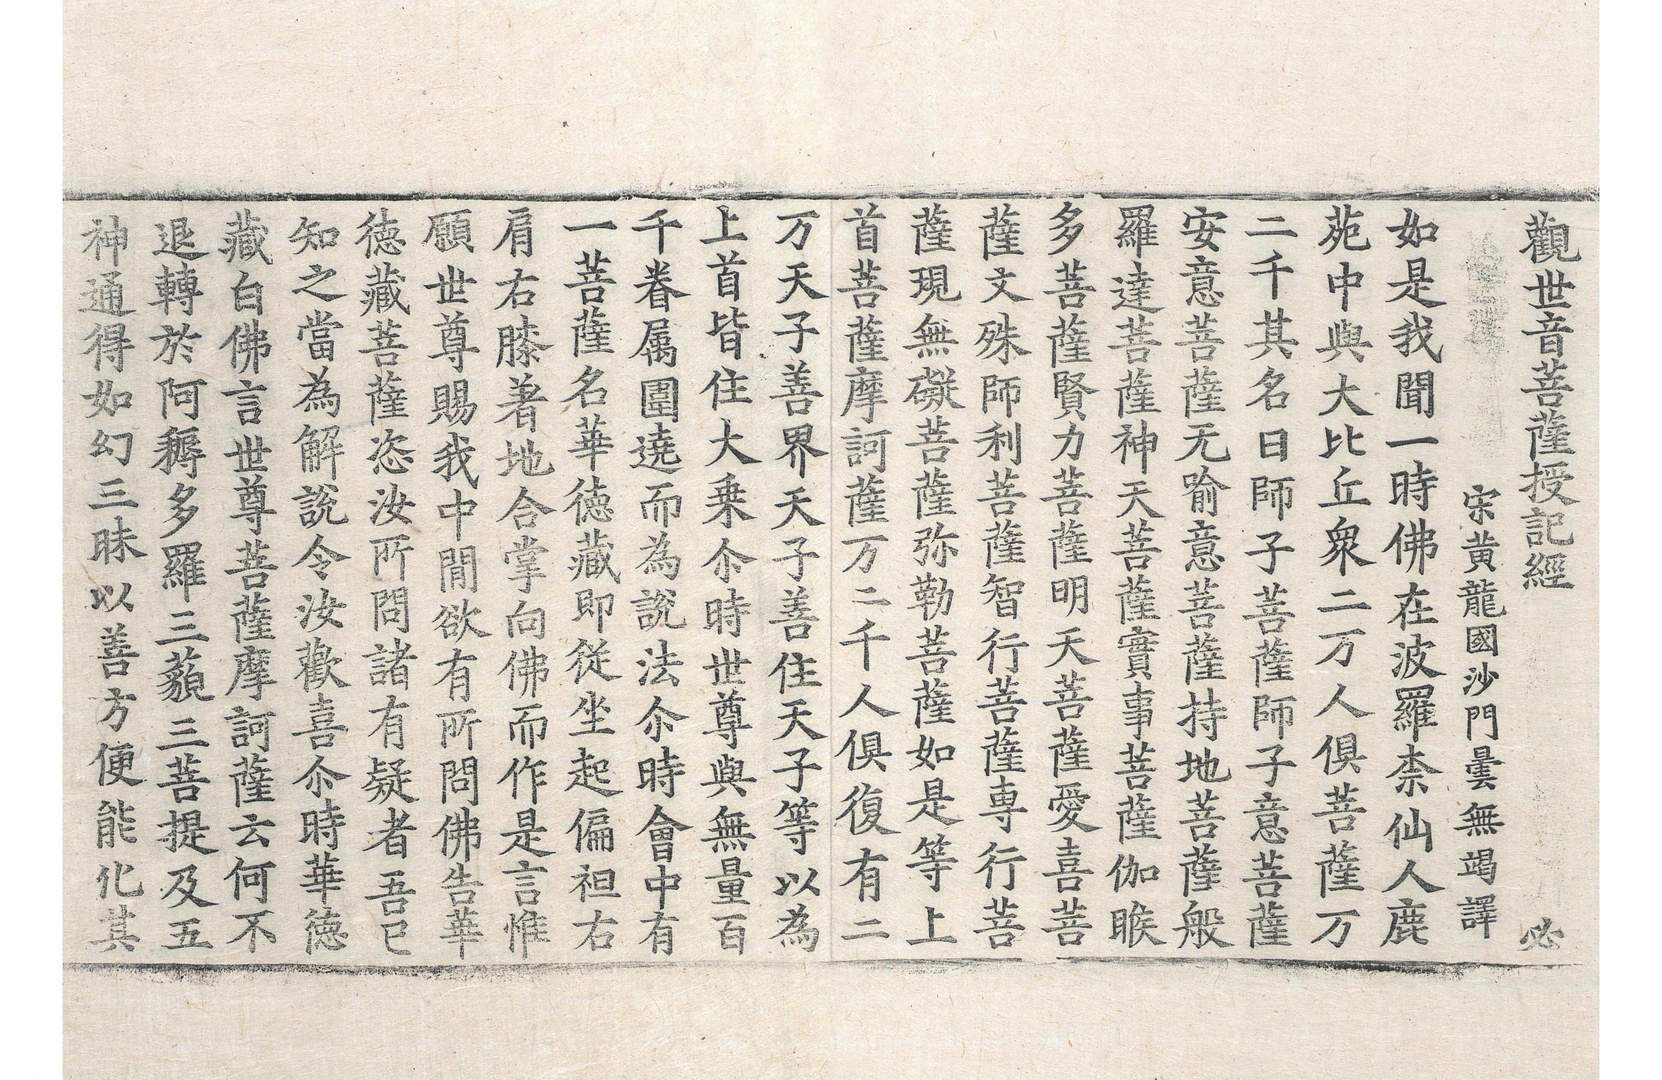 觀世音菩薩授記經 必
宋黃龍國沙門曇無竭譯
如是我聞一時佛在波羅柰仙人鹿
苑中與大比丘衆二万人俱菩薩万
二千其名曰師子菩薩師子意菩薩
安意菩薩无喻意菩薩持地菩薩般
羅達菩薩神天菩薩實事菩薩伽睺
多菩薩賢力菩薩明天菩薩愛喜菩
薩文殊師利菩薩智行菩薩專行菩
薩現無礙菩薩弥勒菩薩如是等上
首菩薩摩訶薩万二千人俱復有二
万天子善界天子善住天子等以為
上首皆住大乘尒時世尊與無量百
千眷属圍遶而為說法尒時會中有
一菩薩名華德藏即從坐起偏袒右
肩右膝著地合掌向佛而作是言惟
願世尊賜我中閒欲有所問佛告華
德藏菩薩恣汝所問諸有疑者吾已
知之當為解說令汝歡喜尒時華德
藏白佛言世尊菩薩摩訶薩云何不
退轉於阿耨多羅三藐三菩提及五
神通得如幻三昧以善方便能化其